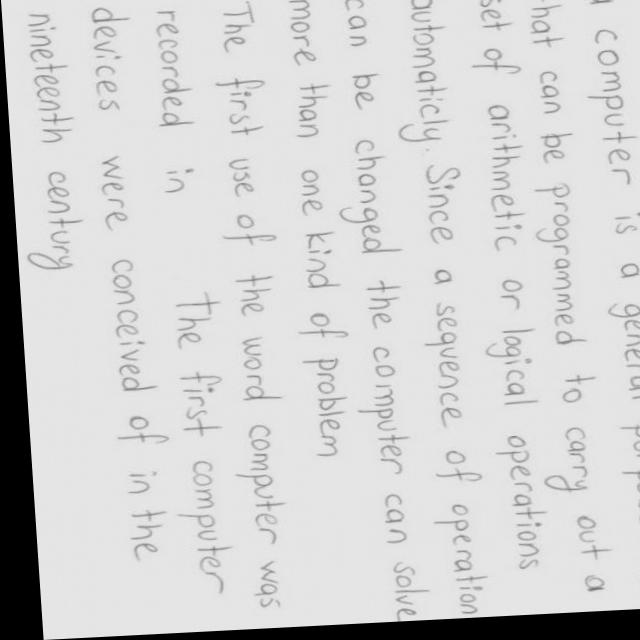 computer is a general
that can be programmed to carry out a
set of arithmetic or logical operations
automaticly. Since a sequence of operation
can be changed the computer can solve
more than one kind of problem
The first use of the word computer was
recorded in The first computer
devices were conceived of in the
nineteenth century